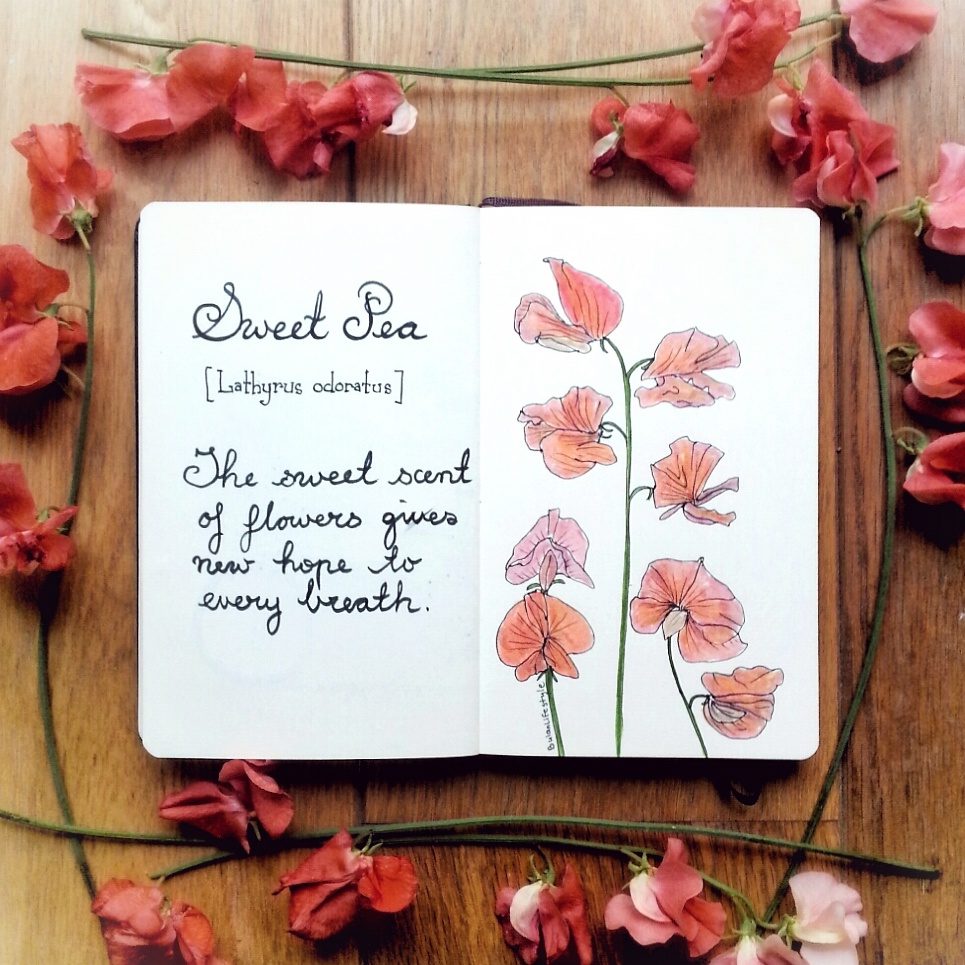 Sweet Pea
[Lathyrus odoratus]
The sweet scent
of flowers gives
new hope to
every breath.
Bulanlifestyle